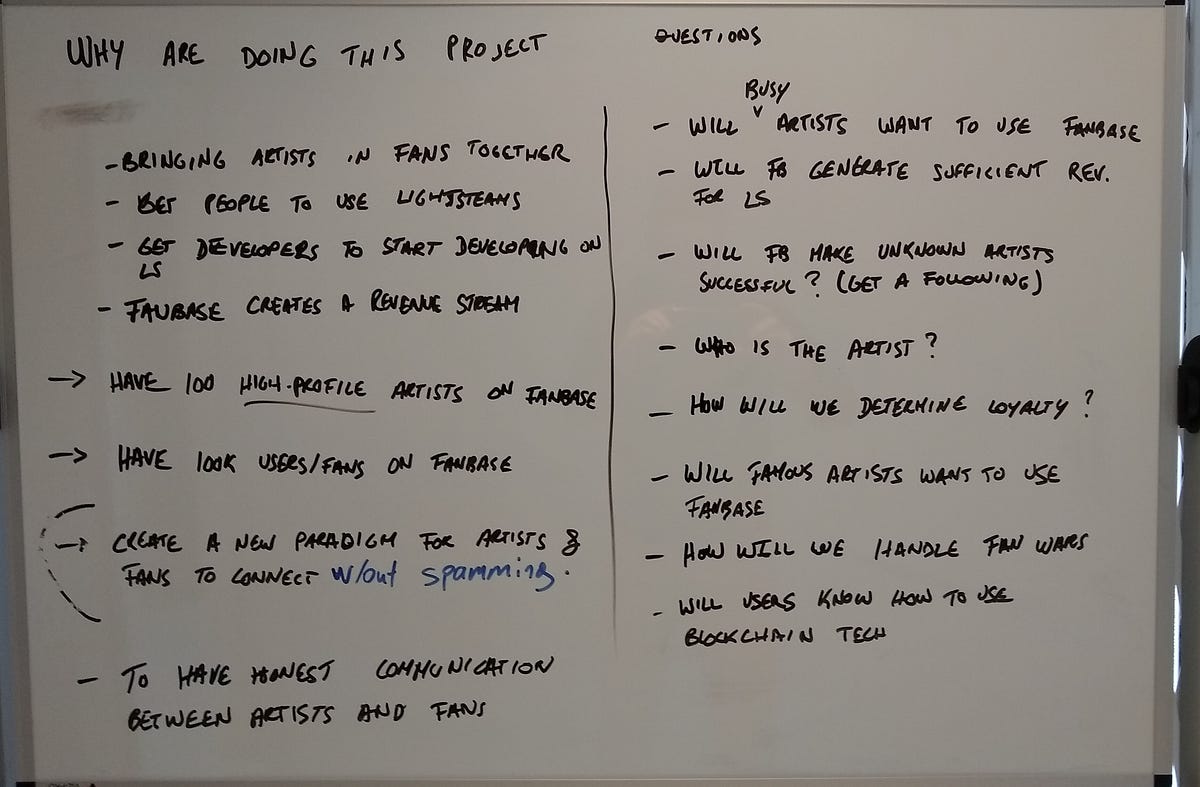 WHY ARE DOING THIS PROJECT
- BRINGING ARTISTS IN FANS TOGETHER
- GET PEOPLE TO USE LIGHTSTEAMS
- GET DEVELOPERS TO START DEVELOPING ON
LS
- FANBASE CREATES A REVENUE STREAM
→ HAVE 100 HIGH-PROFILE ARTISTS ON FANBASE
→ HAVE 100K USERS/FANS ON FANBASE
→ CREATE A NEW PARADIGM FOR ARTISTS &
FANS TO CONNECT w/out spamming.
- TO HAVE HONEST COMMUNICATION
BETWEEN ARTISTS AND FANS
QUESTIONS
BUSY
- WILL ˅ ARTISTS WANT TO USE FANBASE
- WILL FB GENERATE SUFFICIENT REV.
FOR LS
- WILL FB MAKE UNKNOWN ARTISTS
SUCCESSFUL? (GET A FOLLOWING)
- WHO IS THE ARTIST?
- HOW WILL WE DETERMINE LOYALTY?
- WILL FAMOUS ARTISTS WANT TO USE
FANBASE
- HOW WILL WE HANDLE FAN WARS
- WILL USERS KNOW HOW TO USE
BLOCKCHAIN TECH